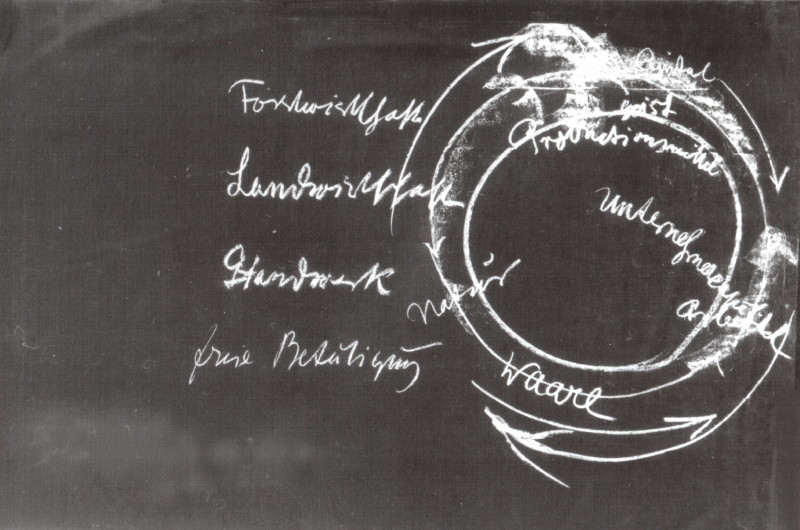 Forstwirtschaft
Landwirtschaft
Handwerk
freie Betätigung
Kapital
Geist
Produktionsmittel
Unternehmerkapital
Arbeit
Natur
Waare